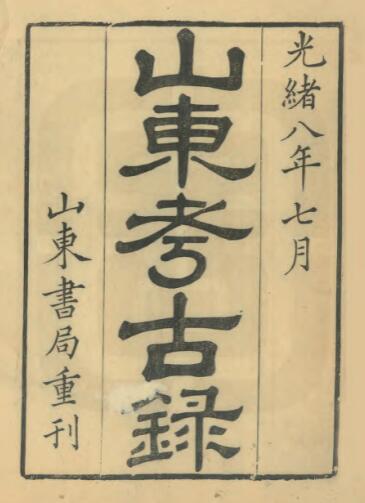 光緒八年七月
山東考古錄
山東書局重刊